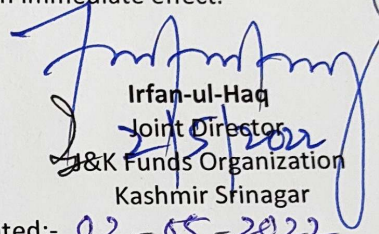 immediate effect.
Irfan-ul-Haq
Joint Director
2/5/2022
J&K Funds Organization
Kashmir Srinagar
ted:- 02-05-2022